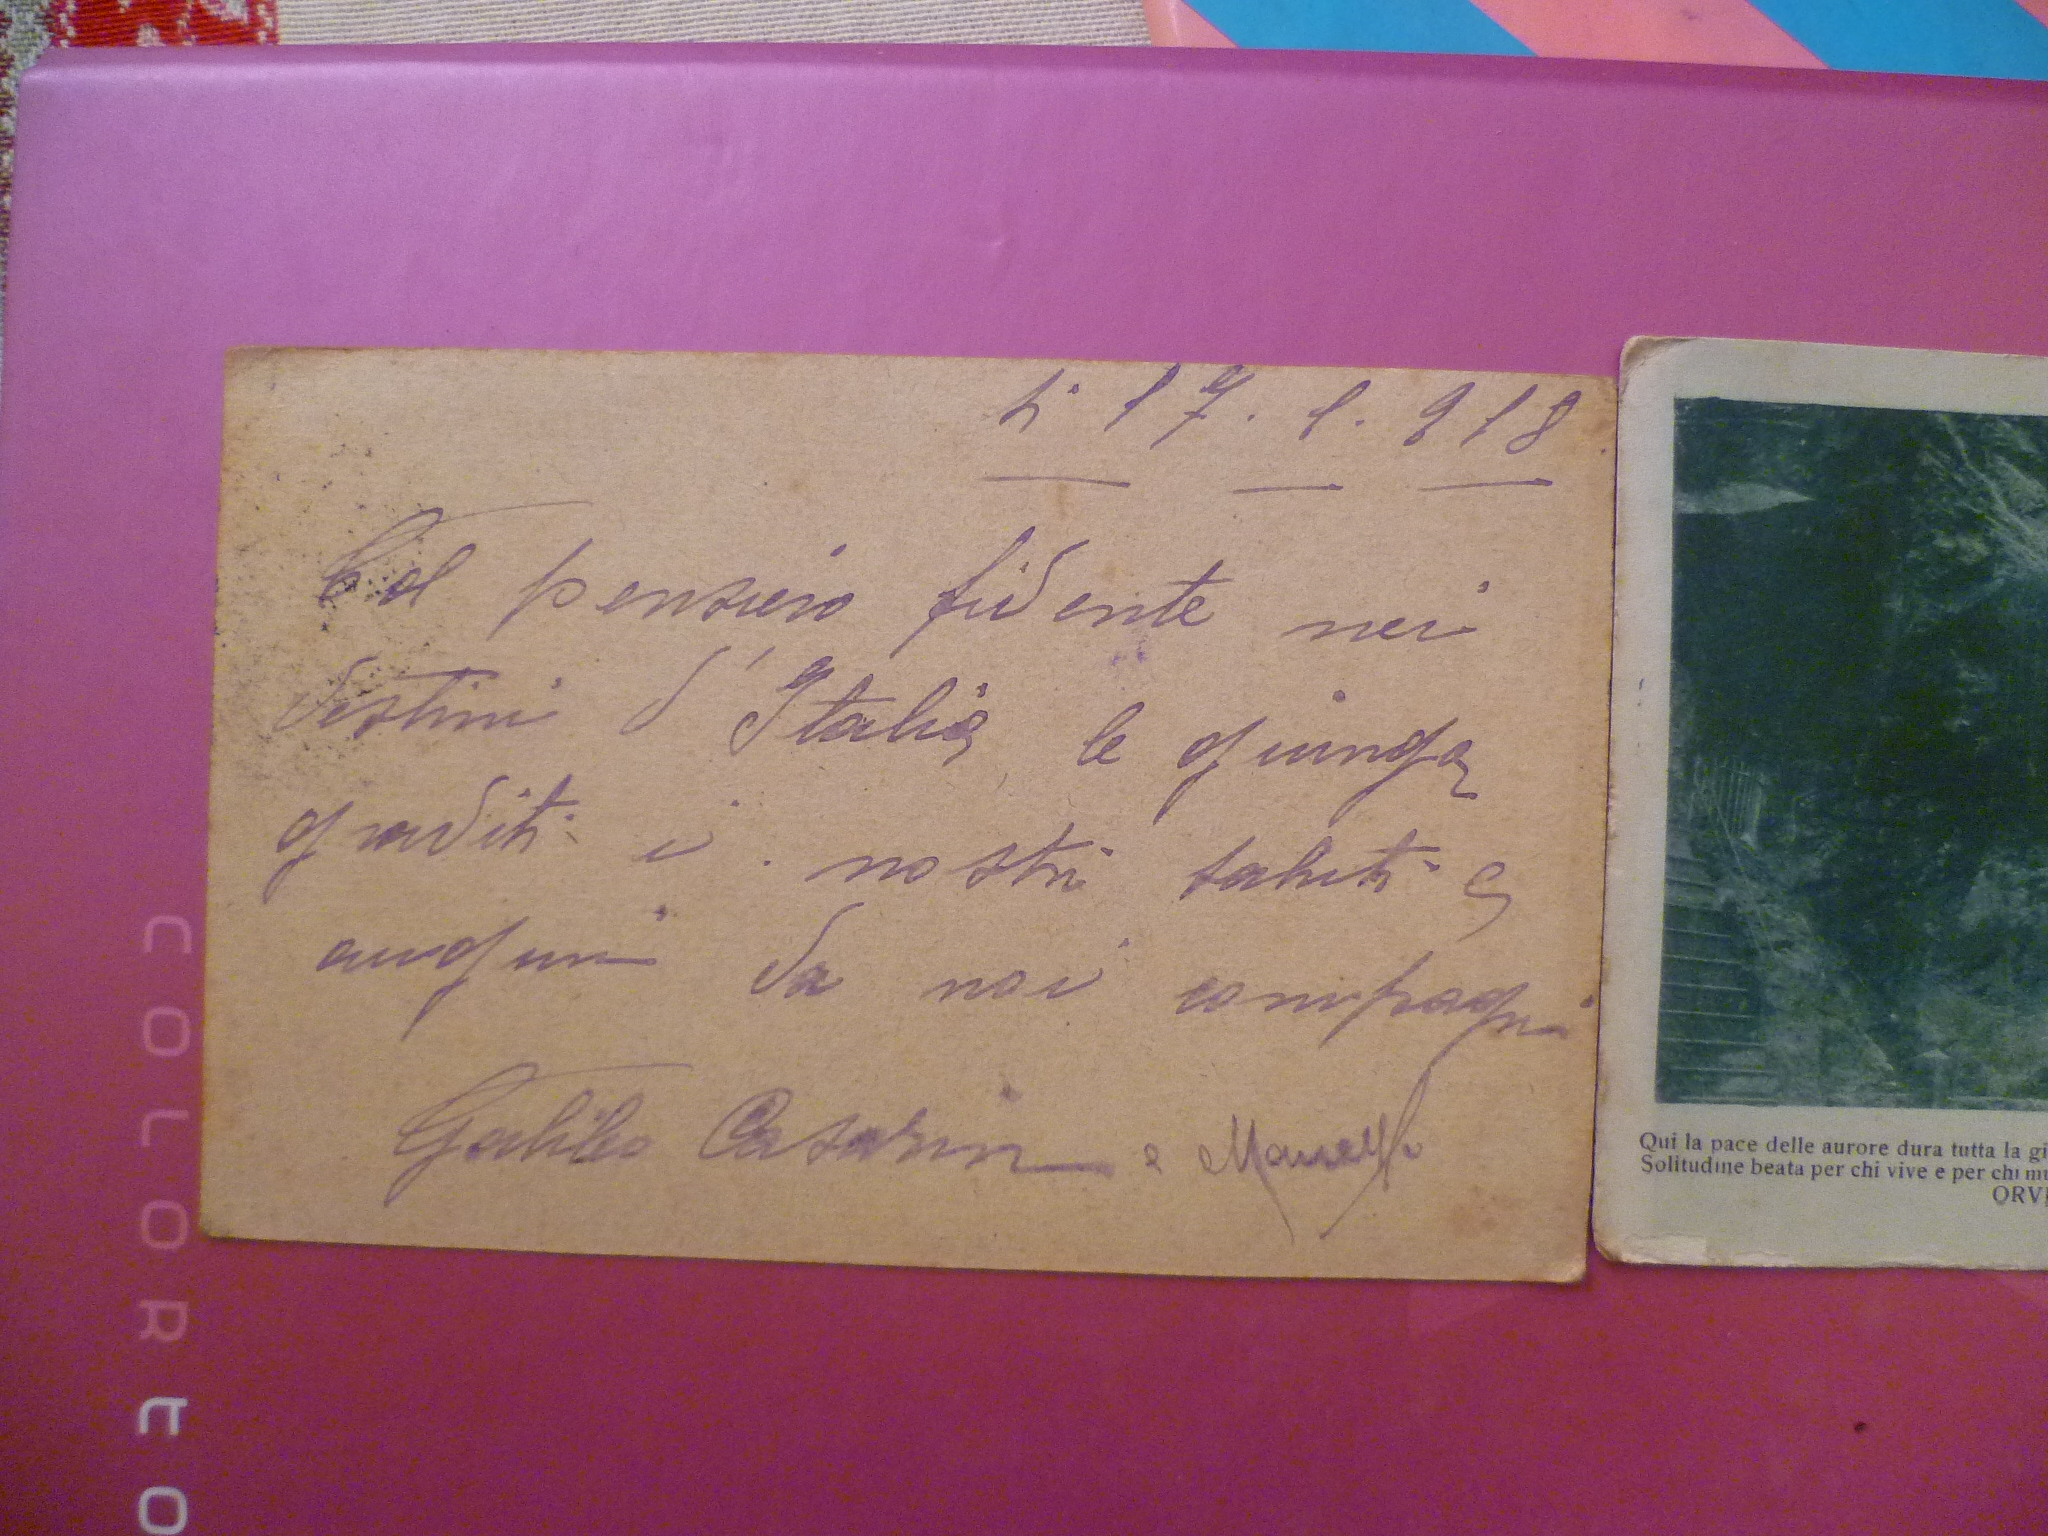 li 17. 1. 918
Col pensiero fidente nei
destini d'Italia le giunga
graditi i nostri saluti e
auguri da noi compagni
Galileo Casarin e
Qui la pace delle aurore dura tutta la gi
Solitudine beata per chi vive e per chi mu
ORVI
COLORFO